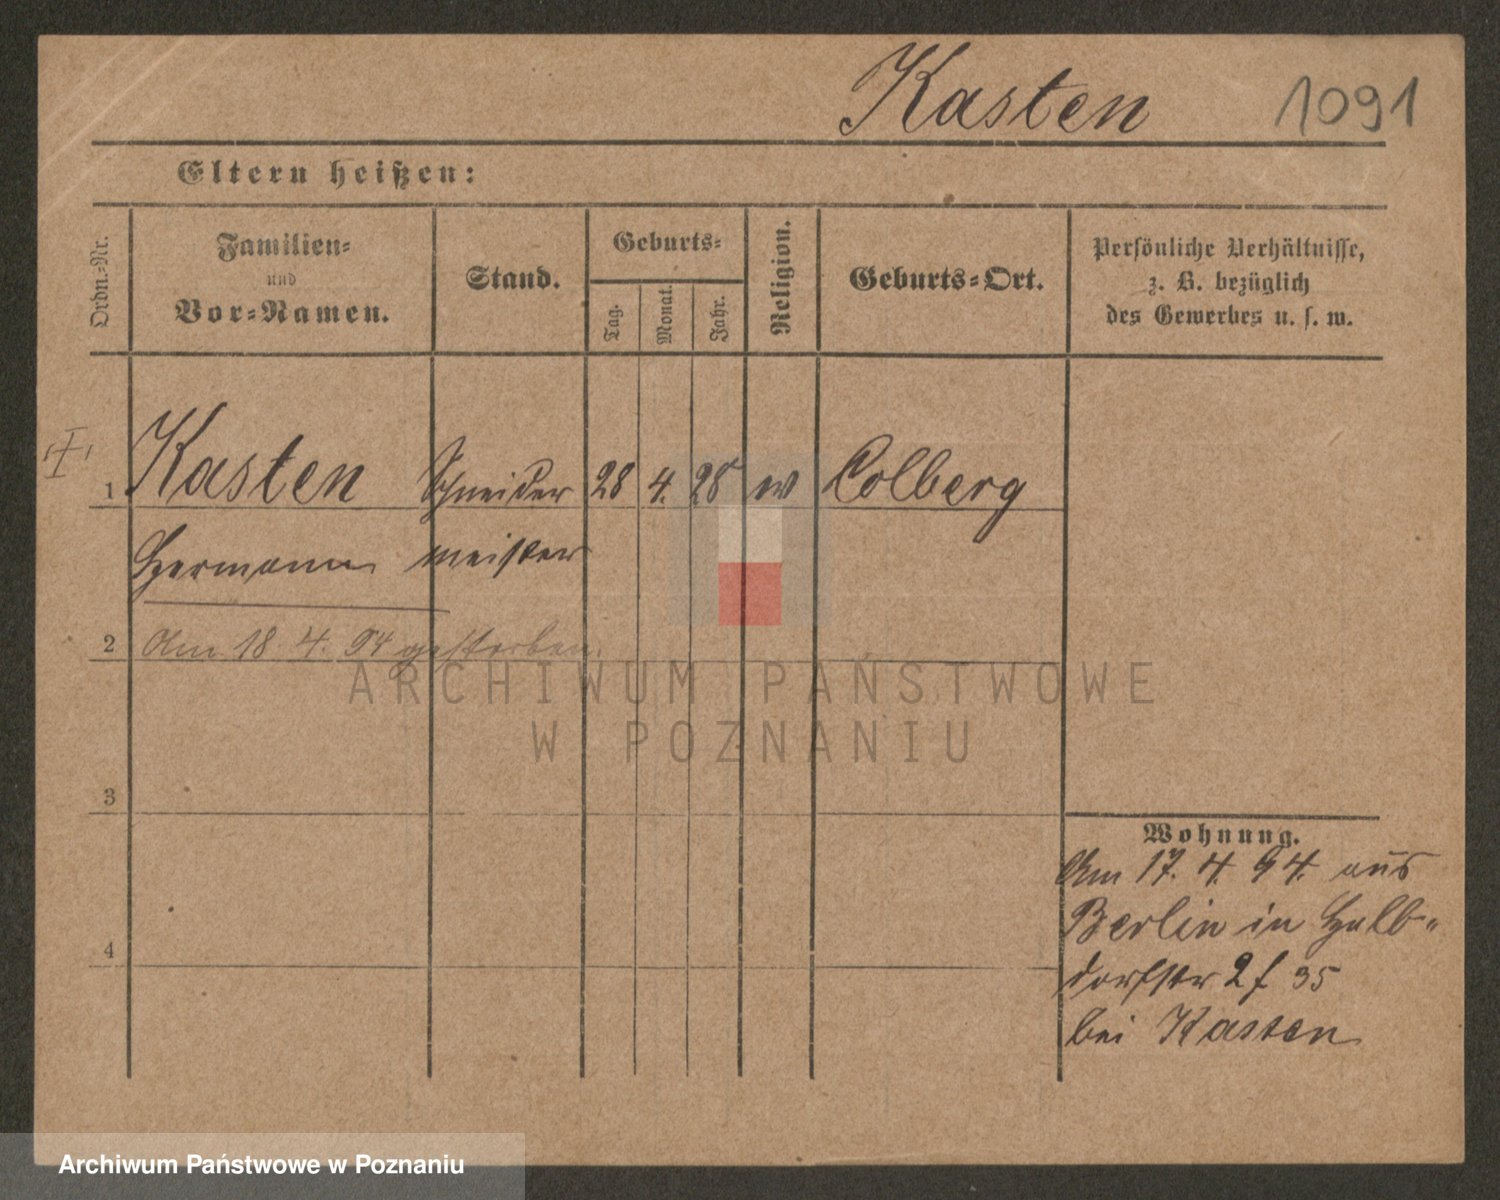 Kasten 1091
Eltern heißen:
Ordn.-Nr.
Familien-
und
Vor-Namen.
Stand.
Geburts-
Tag.
Monat.
Jahr.
Religion.
Geburts-Ort.
Persönliche Verhältnisse,
z. B. bezüglich
des Gewerbes u. s. w.
1 Kasten Schneider 28 4. 28 ev Colberg
Hermann meister
2 Am 18. 4. 94 gestorben.
3
4
Wohnung.
Am 17. 4. 94. aus
Berlin in Halb-
dorfstr 2 f 35
bei Kasten
ARCHIWUM PAŃSTWOWE
W POZNANIU
Archiwum Państwowe w Poznaniu